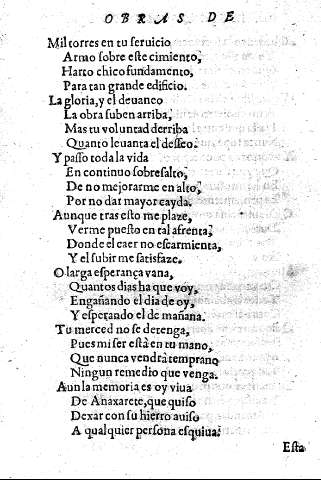 OBRAS DE
Mil torres en tu seruicio
Armo sobre este cimiento,
Harto chico fundamento,
Para tan grande edificio.
La gloria, y el deuaneo
La obra suben arriba,
Mas tu voluntad derriba
Quanto leuanta el desseo.
Y passo toda la vida
En continuo sobresalto,
De no mejorarme en alto,
Por no dar mayor cayda.
Aunque tras esto me plaze,
Verme puesto en tal afrenta,
Donde el caer no escarmienta,
Y el subir me satisfaze.
O larga esperança vana,
Quantos dias ha que voy,
Engañando el dia de oy,
Y esperando el de mañana.
Tu merced no se detenga,
Pues mi ser està en tu mano,
Que nunca vendrà temprano
Ningun remedio que venga.
Aun la memoria es oy viua
De Anaxarete, que quiso
Dexar con su hierro auiso
A qualquier persona esquiua.
Esta